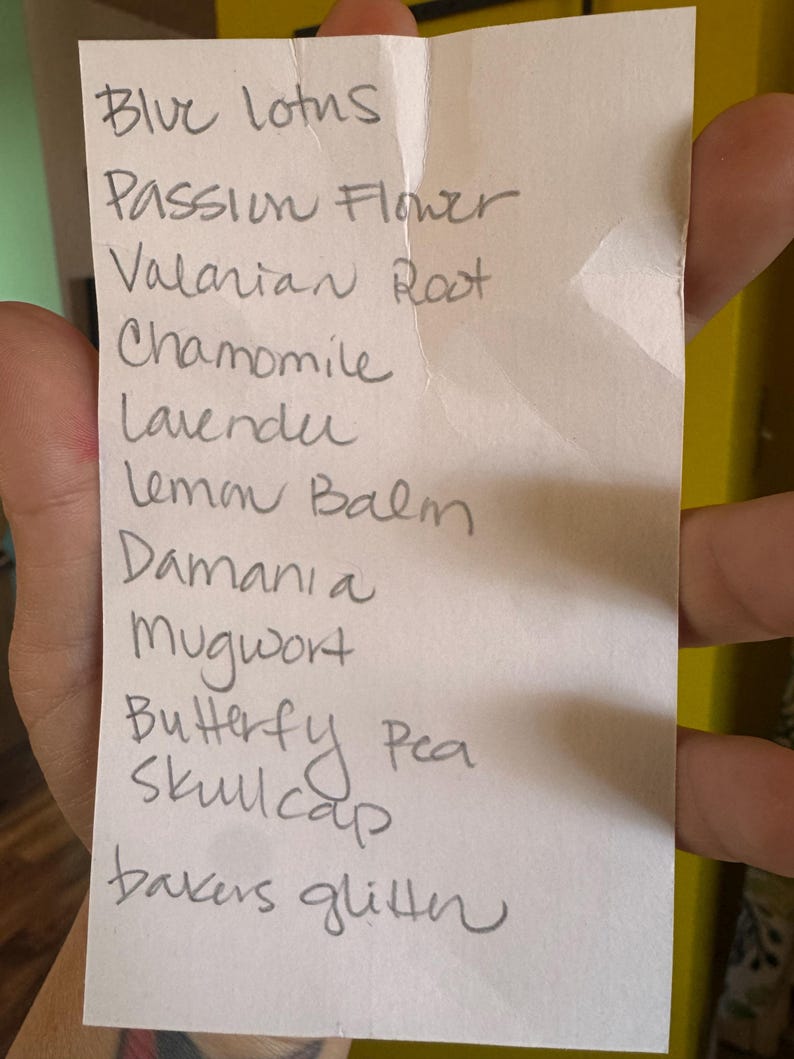 Blue lotus
Passion Flower
Valarian Root
Chamomile
Lavender
Lemon Balm
Damania
Mugwort
Butterfy Pea
Skullcap
bakers glitter